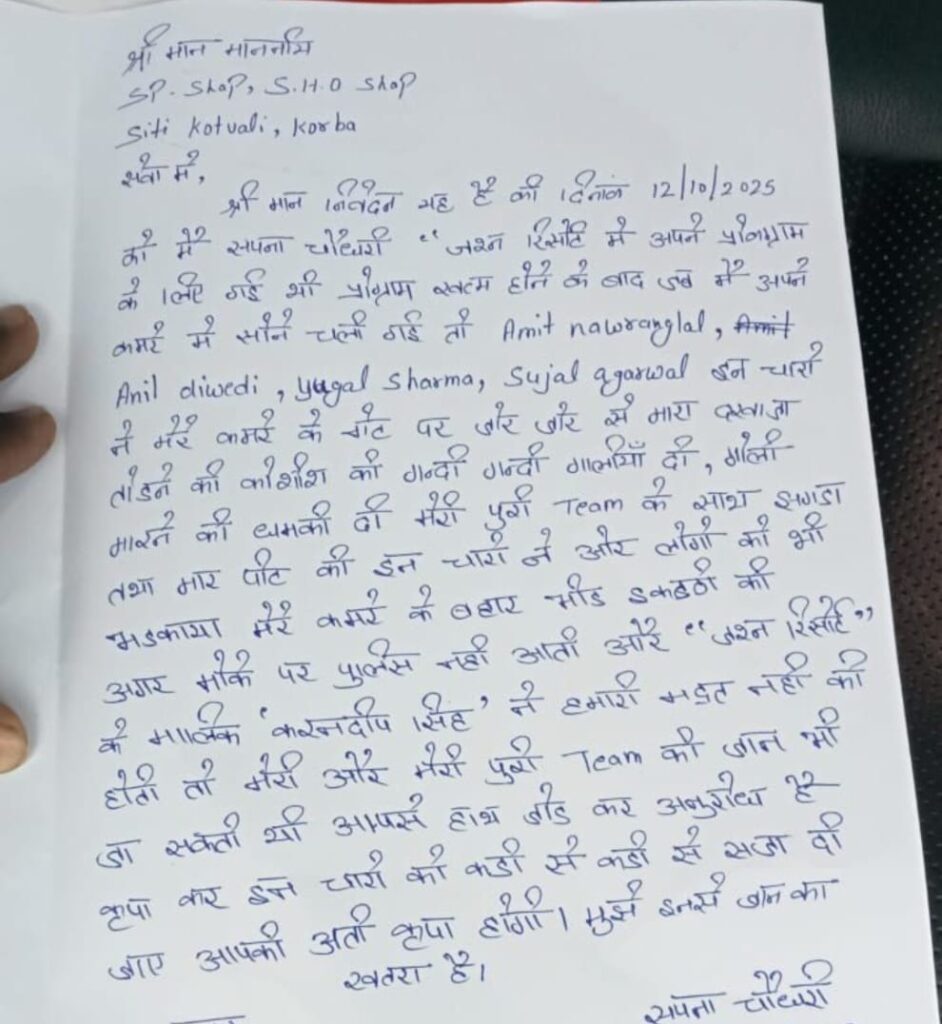 श्री मान माननीय
SP. Shop, S.H.O Shop
Siti Kotvali, Korba
सेवा में,
श्री मान निवेदन यह है की दिनांक 12/10/2025
को में सपना चौधरी “जश्न रिसोर्ट में अपने प्रोगग्राम
के लिए गई थी प्रोग्राम खत्म होने के बाद जब में अपने
कमरे में सोने चली गई तो Amit nawranglal, Amit
Anil diwedi, yugal Sharma, Sujal agarwal इन चारो
ने मेरे कमरे के गेट पर जोर जोर से मारा दरवाजा
तोडने की कोशीश की गन्दी गन्दी गालीयाँ दी, गोली
मारने की धमकी दी मेरी पुरी Team के साथ झगडा
तथा मार पीट की इन चारो ने और लोगो को भी
भडकाया मेरे कमरे के बहार भीड इकठठी की
अगर मौके पर पुलिस नही आती और “जश्न रिसोर्ट”
के मालिक ‘करनदीप सिंह’ ने हमारी मद्दत नही की
होती तो मेरी और मेरी पुरी Team की जान भी
जा सकती थी आपसे हाथ जोड कर अनुरोध है
कृपा कर इन चारो को कडी से कडी से सजा दी
जाए आपकी अती कृपा होगी। मुझे इनसे जान का
खतरा है।
सपना चौधरी